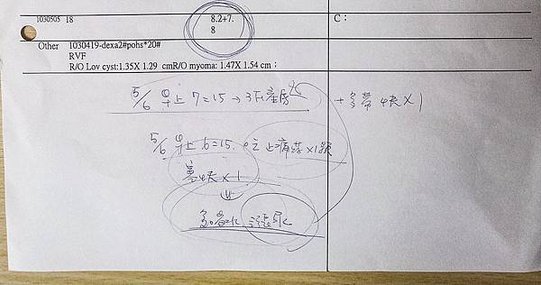 1030505 18 8.2+7. C：
8
Other 1030419-dexa2#pohs*20#
RVF
R/O Lov cyst:1.35X 1.29 cmR/O myoma: 1.47X 1.54 cm；
5/6 早上 7=15 → 3F 產房 +多帶 ×1
5/6 早上 6=15 吃 止痛藥×1顆
×1
多喝水